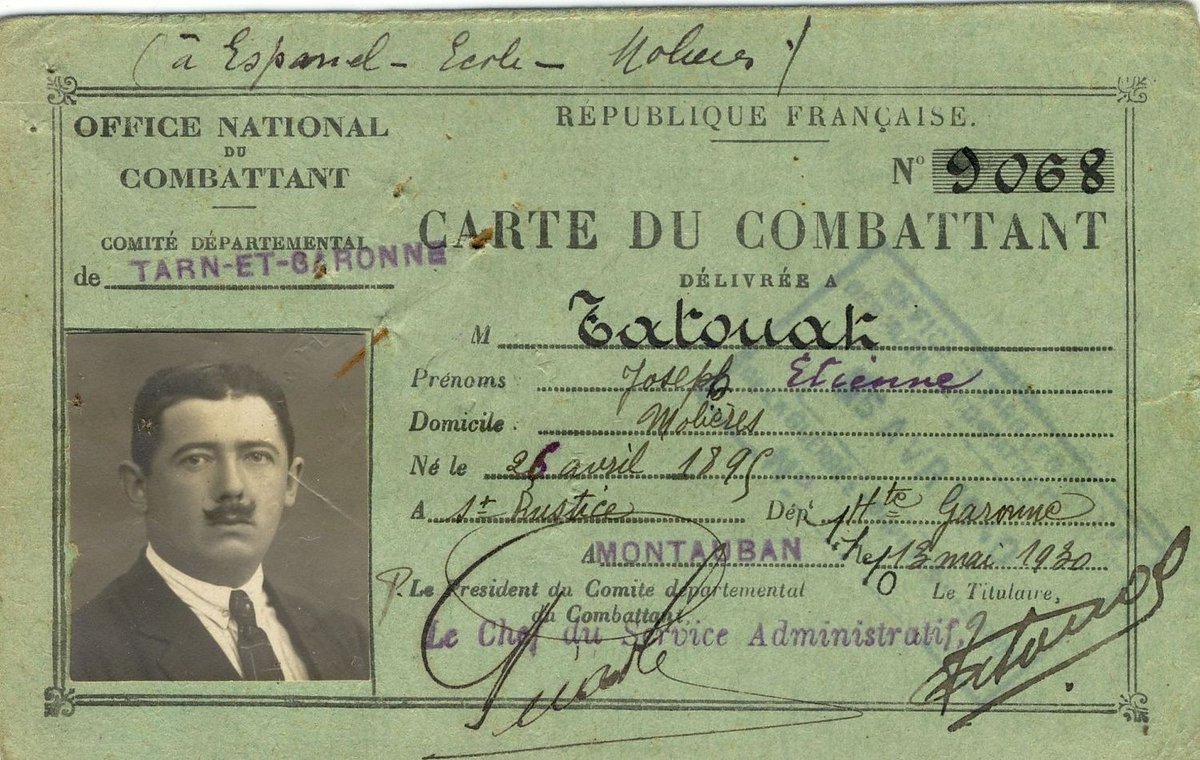 (à Espanel - Ecole - Molieres)
OFFICE NATIONAL
DU
COMBATTANT
COMITÉ DÉPARTEMENTAL
de TARN-ET-GARONNE
RÉPUBLIQUE FRANÇAISE.
No 9068
CARTE DU COMBATTANT
DÉLIVRÉE A
M
Prénoms Joseph Etienne
Domicile Molières
Né le 26 avril 1895
A St Rustice Dépt Hte Garonne
A MONTAUBAN le 13 mai 1930
P. Le Président du Comité départemental
du Combattant
Le Titulaire,
Le Chef du Service Administratif,